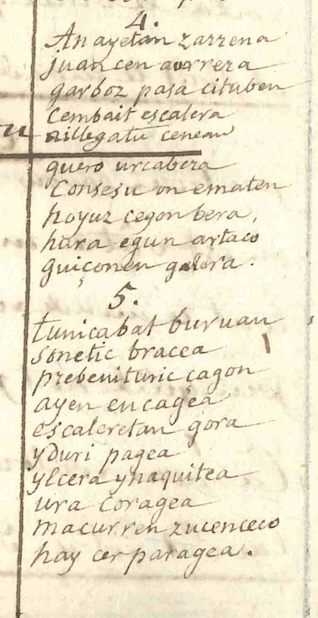 4.
Anayetan zarrena
Juan cen aurrera
garboz pasa cituben
cembait escalera
aillegatu cenean
guero urcabera
Consesu on ematen
hoyuz cegon bera,
hura egun artaco
guiçonen galera.
5.
tunica bat buruan
sonetic bracea
prebenituric çagon
ayen encagea
escaleretan gora
yduri pagea
ylcera ynaquitea
ura coragea
macurren zucenceco
hay cer paragea.